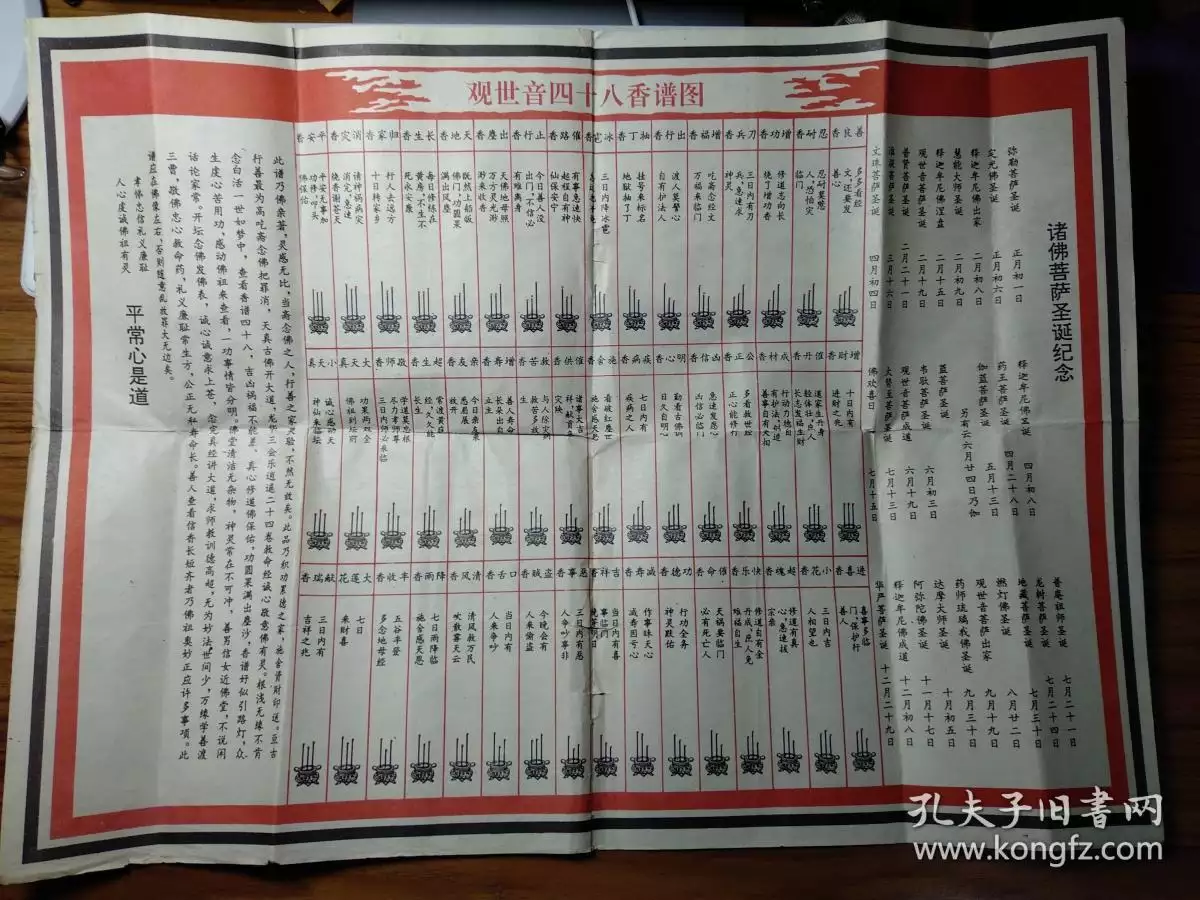 观世音四十八香谱图
诸佛菩萨圣诞纪念
弥勒菩萨圣诞 正月初一日
定光佛圣诞 正月初六日
释迦牟尼佛出家 二月初八日
慧能大师圣诞 二月初九日
释迦牟尼佛涅盘 二月十五日
观世音菩萨圣诞
普贤菩萨圣诞 二月二十一日
三月十六日
文殊菩萨圣诞 四月初四日
释迦牟尼佛圣诞 四月初八日
药王菩萨圣诞 四月二十八日
伽蓝菩萨圣诞 五月十三日
另有云六月廿四日乃伽
蓝菩萨圣诞
韦驮菩萨圣诞 六月初三日
观世音菩萨成道 六月十九日
大势至菩萨圣诞 七月十三日
佛欢喜日 七月十五日
普庵祖师圣诞 七月二十一日
龙树菩萨圣诞 七月二十四日
地藏菩萨圣诞 七月三十日
燃灯佛圣诞 八月廿二日
观世音菩萨出家 九月十九日
药师琉璃光佛圣诞 九月三十日
达摩大师圣诞 十月初五日
阿弥陀佛圣诞 十一月十七日
释迦牟尼佛成道 十二月初八日
华严菩萨圣诞 十二月二十九日
善良香
多多看经
文,还要发
善心
忍耐香
忍耐莫愁
人,恐怕灾
临门
增功香
修道志向长
烧了增功香
刀兵香
三日内有刀
兵,急速求
神灵
增福香
吃斋念经文
万福来临门
出行香
渡人莫警心
自有护法人
抽丁香
挂号来标名
地狱抽了丁
冰雹香
三日内降冰雹
催路香
有事急速快
起程自有神
仙保安宁
止行香
今日善人没
出门,不信必
有难离身
出塵香
天地老母照
万方灵光渺
渺来收香
天地香
既然上船皈
佛门,功圆果
满出风塵
长生香
每日修练在
黄房,不老不
死永安康
归家香
行人去远方
十日转家乡
消灾香
请神祸病灾
消完,急速
烧香谢苍天
平安香
平安无事加
功修,叩头
佛保佑
增财香
十日内有
进财之兆
催丹香
道家生丹身
轻体壮,贵人
长志发福生财
成材香
行动力德日
有护法,创造
善事自有天相
公正香
多看救世经
正心能修行
凶信香
急速发愿心
凶信必临门
明心香
勤看古佛训
日久自明心
疾病香
七日内有
疾病之人
施舍香
看破红塵世
施舍感天恩
催供香
诸事大吉
祥,献首免
灾殃
救苦香
与人除灾病
救苦多放
生
增寿香
善人寿命
长朵出自
立主
亲友香
今日亲友来
愿用展
放开
超生香
常渡黄在
经,久久能
长生
敬师香
学道莫忘根
尽力孝师尊
三日内师必来临
大天真
功果两双全
佛祖到坛前
小天真
诚心感动天
神仙来临坛
进喜香
喜事多临
门,保护行
善人
小花香
三日内吉
人相望也
超魂香
修道有真
心,急速拔
宗亲
快乐香
修道自有全
丹成,庶人免
难福自生
催命香
天祸要临门
必有死亡人
功德香
行功全务
神灵跃佑
减寿香
作事昧天心
减寿因亏心
吉祥香
当日内有喜
事临门
恶事香
三日内有恶
人争吵事非
盗贼香
今晚会有
人来偷盗
口舌香
当日内有
人来争吵
清风香
清风救万民
吹散雾天云
降雨香
七日雨降临
施舍感天恩
丰收香
五谷丰登
多念地母经
大莲花
七日
来财喜
献瑞香
三日内有
吉祥之兆
此谱乃佛亲著,灵感无比,当斋念佛之人,行善之家灵验,不然无效矣。此品乃积功累德之家,施舍资财印送。亘古
行善最为高吃斋念佛把罪消,天真古佛开大道,龙华三会乐逍遥二十四卷救命经诚心敬意佛有灵。根浅无缘不肯
念白活一世如梦中,查看香谱四十八,吉凶祸福不能差,真心修道佛保佑,功圆果满出塵沙,香谱好似引路灯,众
生虔心苦用功,感动佛祖来查看,一功事情皆分明。佛堂清洁无杂物,神灵常在不可冲,善男信女近佛堂,不说闲
话论家常。开坛念佛发佛表,诚心诚意求上苍,念完真经讲大道,求师教训德高超,无为妙法世间少,万缘学善渡
三曹,敬佛忠心救命药,礼义廉耻常生方,公正无私寿命长。善人查看信香长短齐者乃佛祖奥妙正应许多事项。此
谱应在佛像左右,否则随意乱放罪大无边矣。
孝悌忠信礼义廉耻
人心虔诚佛祖有灵
平常心是道
孔夫子旧书网
www.kongfz.com